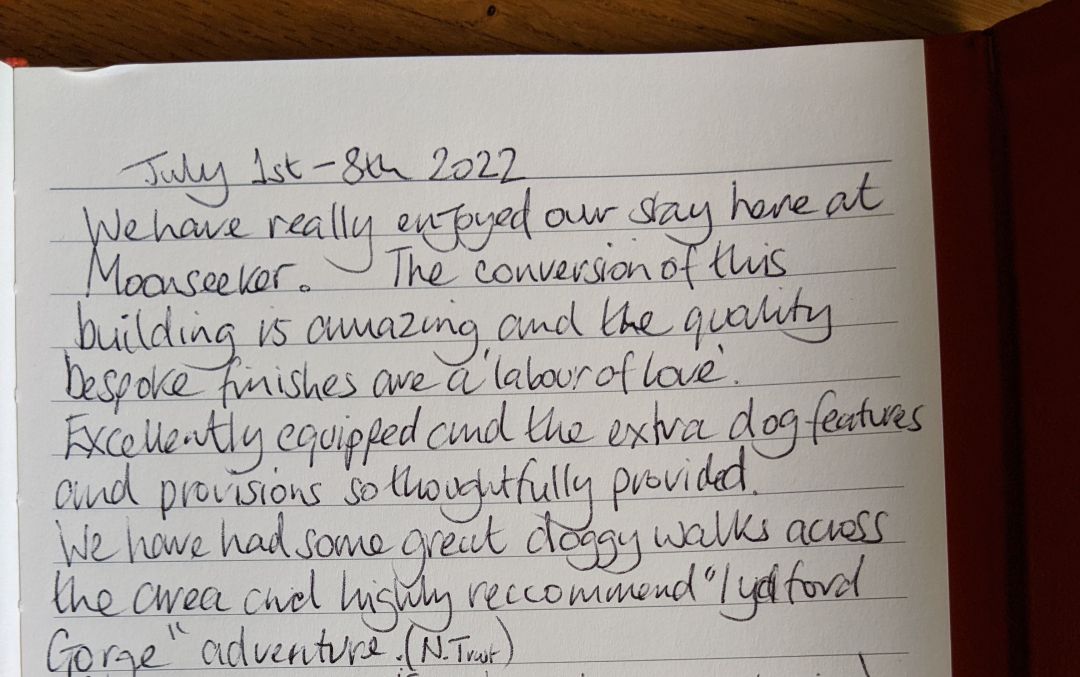 July 1st - 8th 2022
We have really enjoyed our stay here at
Moonseeker. The conversion of this
building is amazing and the quality
bespoke finishes are a 'labour of love'.
Excellently equipped and the extra dog features
and provisions so thoughtfully provided.
We have had some great doggy walks across
the area and highly reccommend "lydford
Gorge" adventure. (N. Trust)